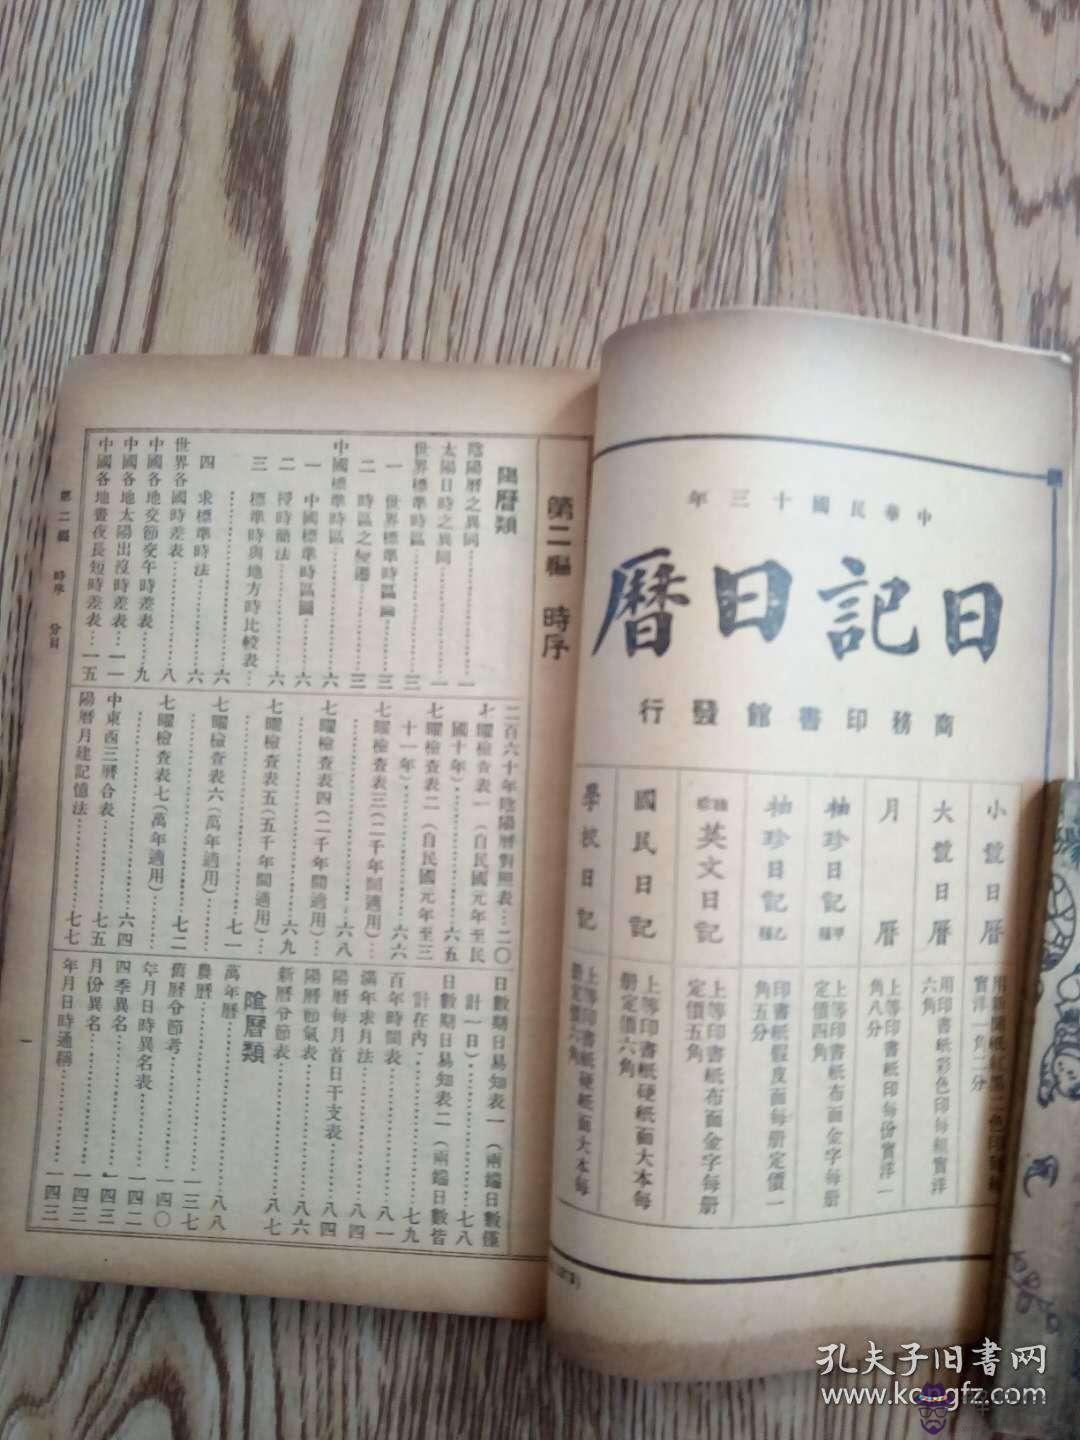 中華民國十三年
日記日曆
商務印書館發行
小號日曆
實洋一角二分
大號日曆
用印書紙彩色印每組實洋
六角
月曆
上等印書紙印每份實洋一
角八分
袖珍日記甲種
上等印書紙布面金字每册
定價四角
袖珍日記乙種
印書紙假皮面每册定價一
角五分
英文日記
上等印書紙布面金字每册
定價五角
國民日記
上等印書紙硬紙面大本每
册定價六角
學校日記
上等印書紙硬紙面大本每
册定價六角
第二編 時序
陽曆類
陰陽曆之異同……一
太陽日時之異同……一
世界標準時區……三
一 世界標準時區圖……三
二 時區之變遷……三
中國標準時區……六
一 中國標準時區圖……六
二 授時簡法……六
三 標準時與地方時比較表…
……六
四 求標準時法……六
世界各國時差表……八
中國各地交節交午時差表…九
中國各地太陽出沒時差表…一一
中國各地晝夜長短時差表…一五
二百六十年陰陽曆對照表…二〇
七曜檢查表一(自民國元年至民
國十年)……六五
七曜檢查表二(自民國元年至三
十一年)……六六
七曜檢查表三(二千年間適用)…
……六八
七曜檢查表四(二千年間適用)…
……六九
七曜檢查表五(五千年間適用)…
……七一
七曜檢查表六(萬年適用)…
……七二
七曜檢查表七(萬年適用)…
……六四
中東西三曆合表……七五
陽曆月建記憶法……七七
日數期日易知表一(兩端日數僅
計一日)……七八
日數期日易知表二(兩端日數皆
計在內)……七九
百年時間表……八一
滿年求月法……八四
陽曆每月首日干支表……八四
陽曆節氣表……八六
新曆分節表……八七
陰曆類
萬年曆……八八
農曆……一三七
舊曆分節考……一四〇
年月日時異名表……一四二
四季異名……一四三
月份異名……一四三
年月日時通稱……一四三
第二編 時序 分目
一
孔夫子旧書网
www.kongfz.com